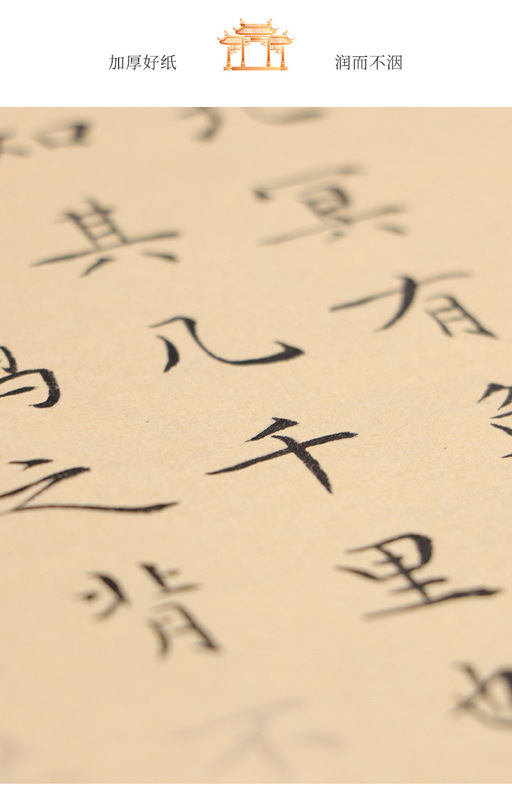 加厚好纸
润而不洇
冥有
知其几千里也
之背不